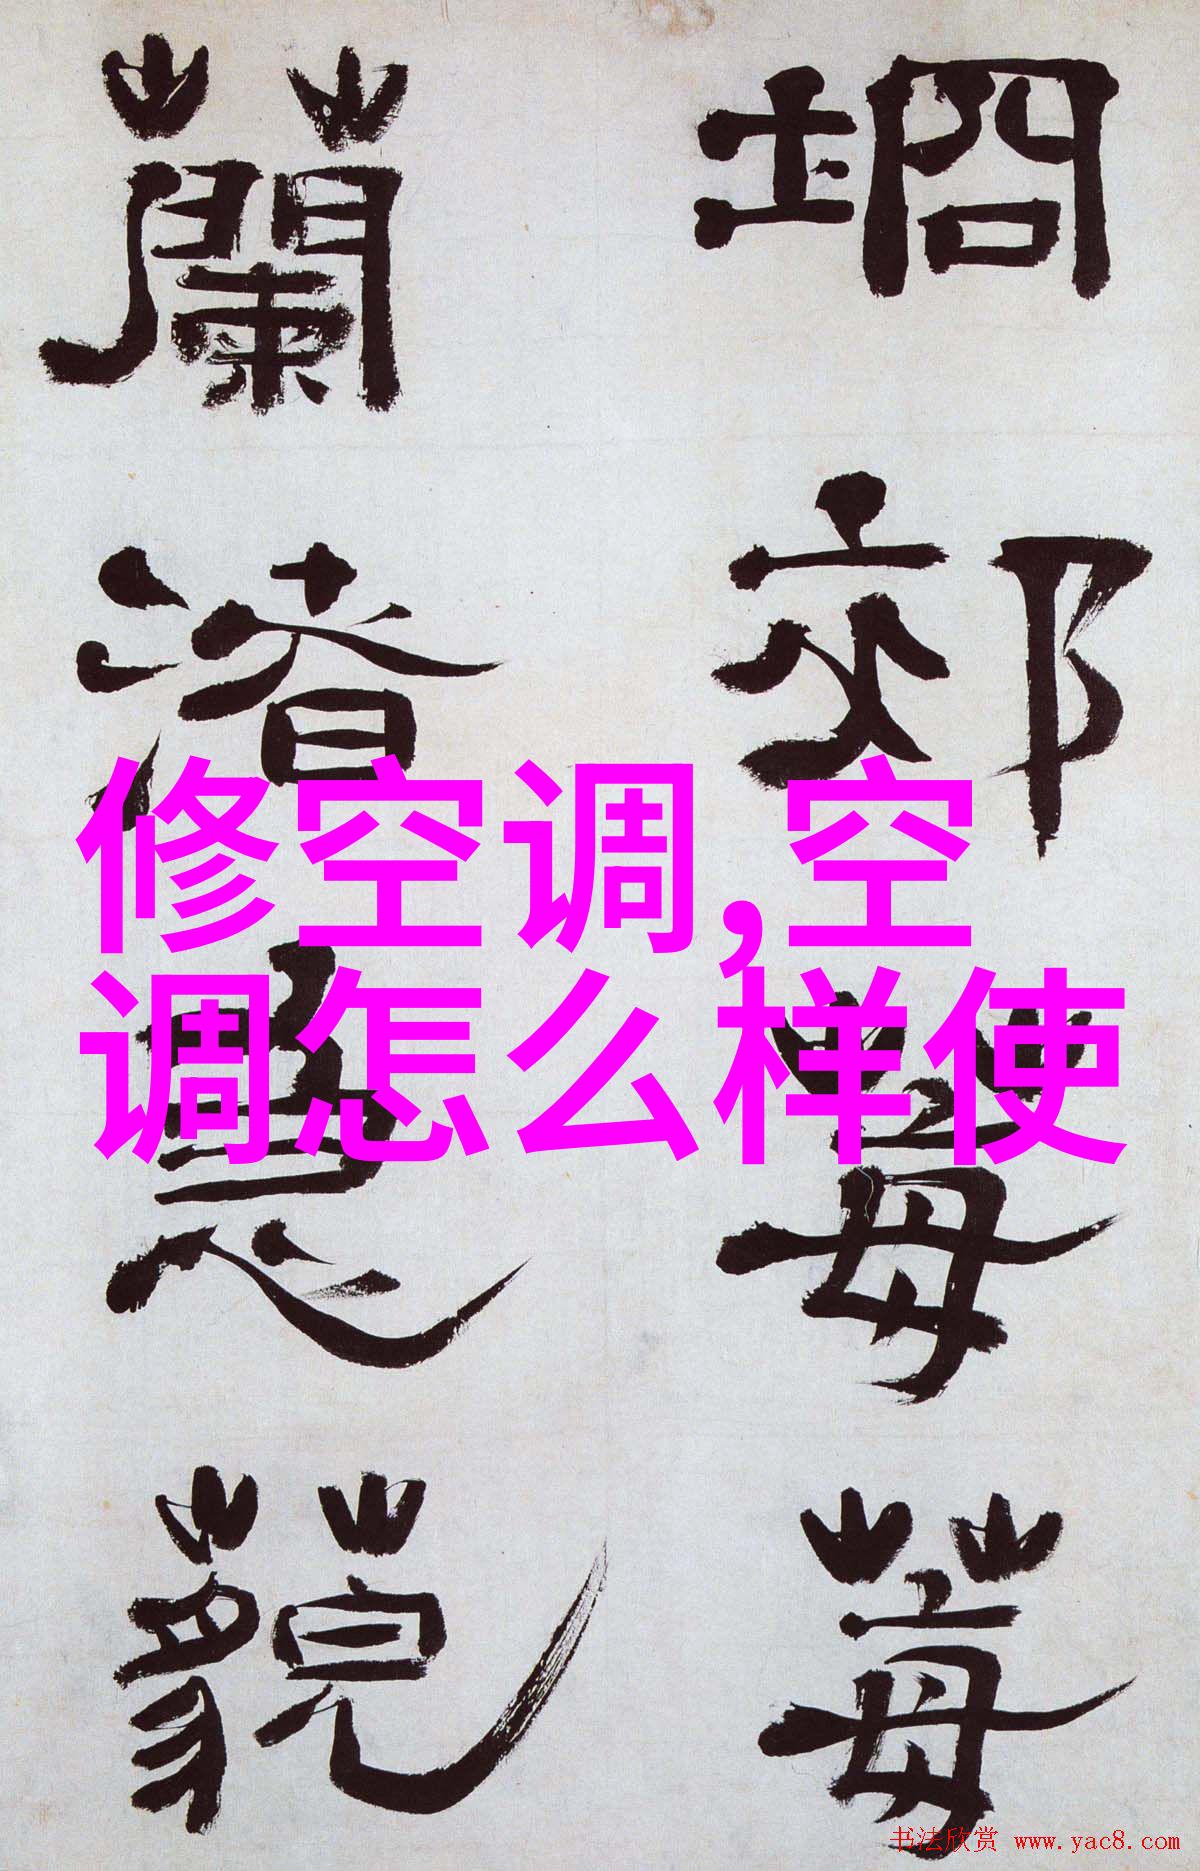 坰郊莓莓
蘭渚
藐
修空调,空
调怎么样使
书法欣赏 www.yac8.com